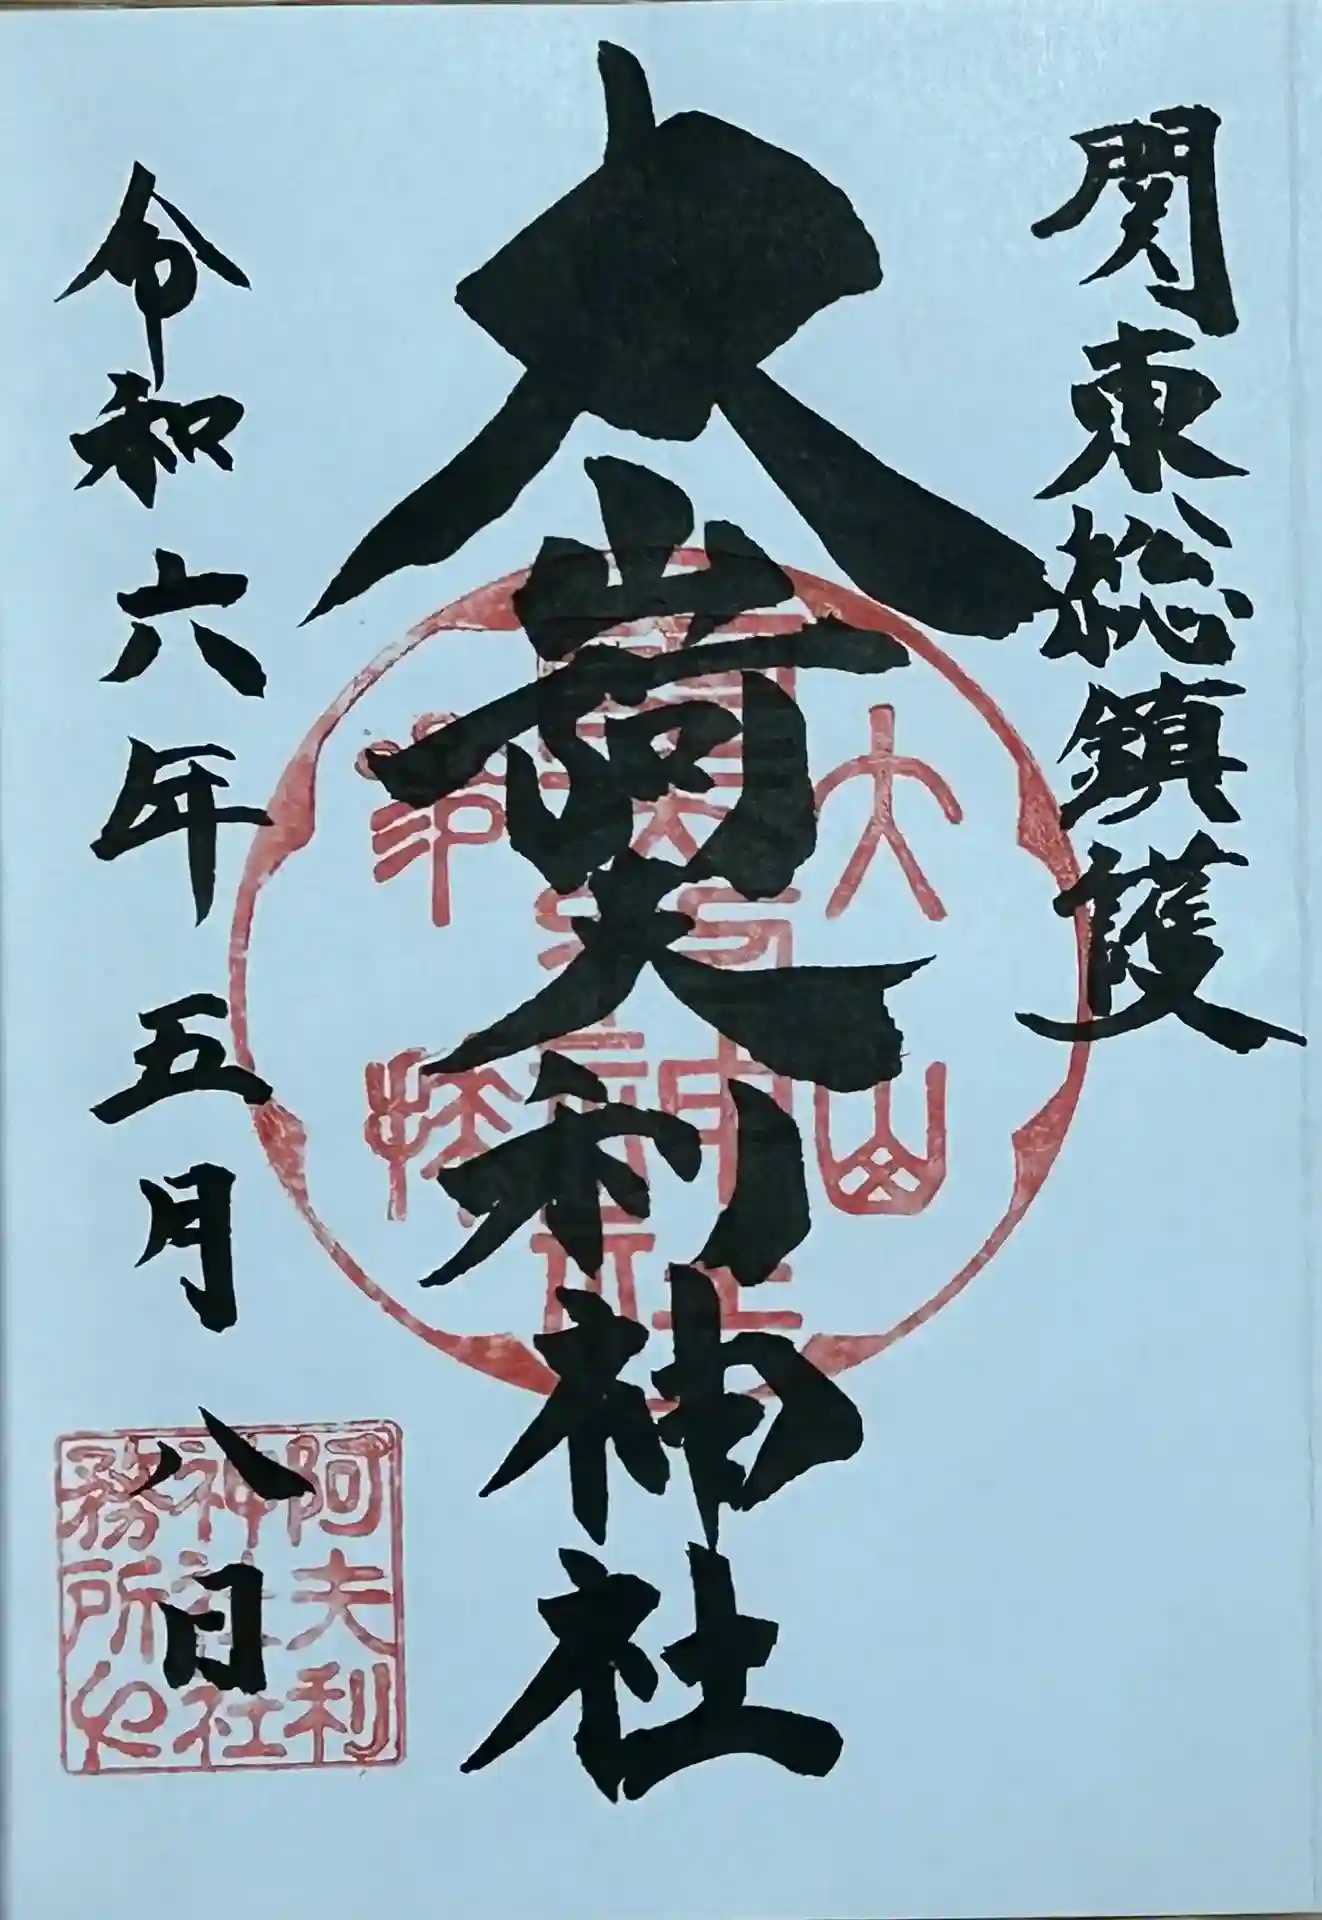 関東総鎮護
大山阿夫利神社
令和六年五月八日
大山
阿夫利
神社社
務所印